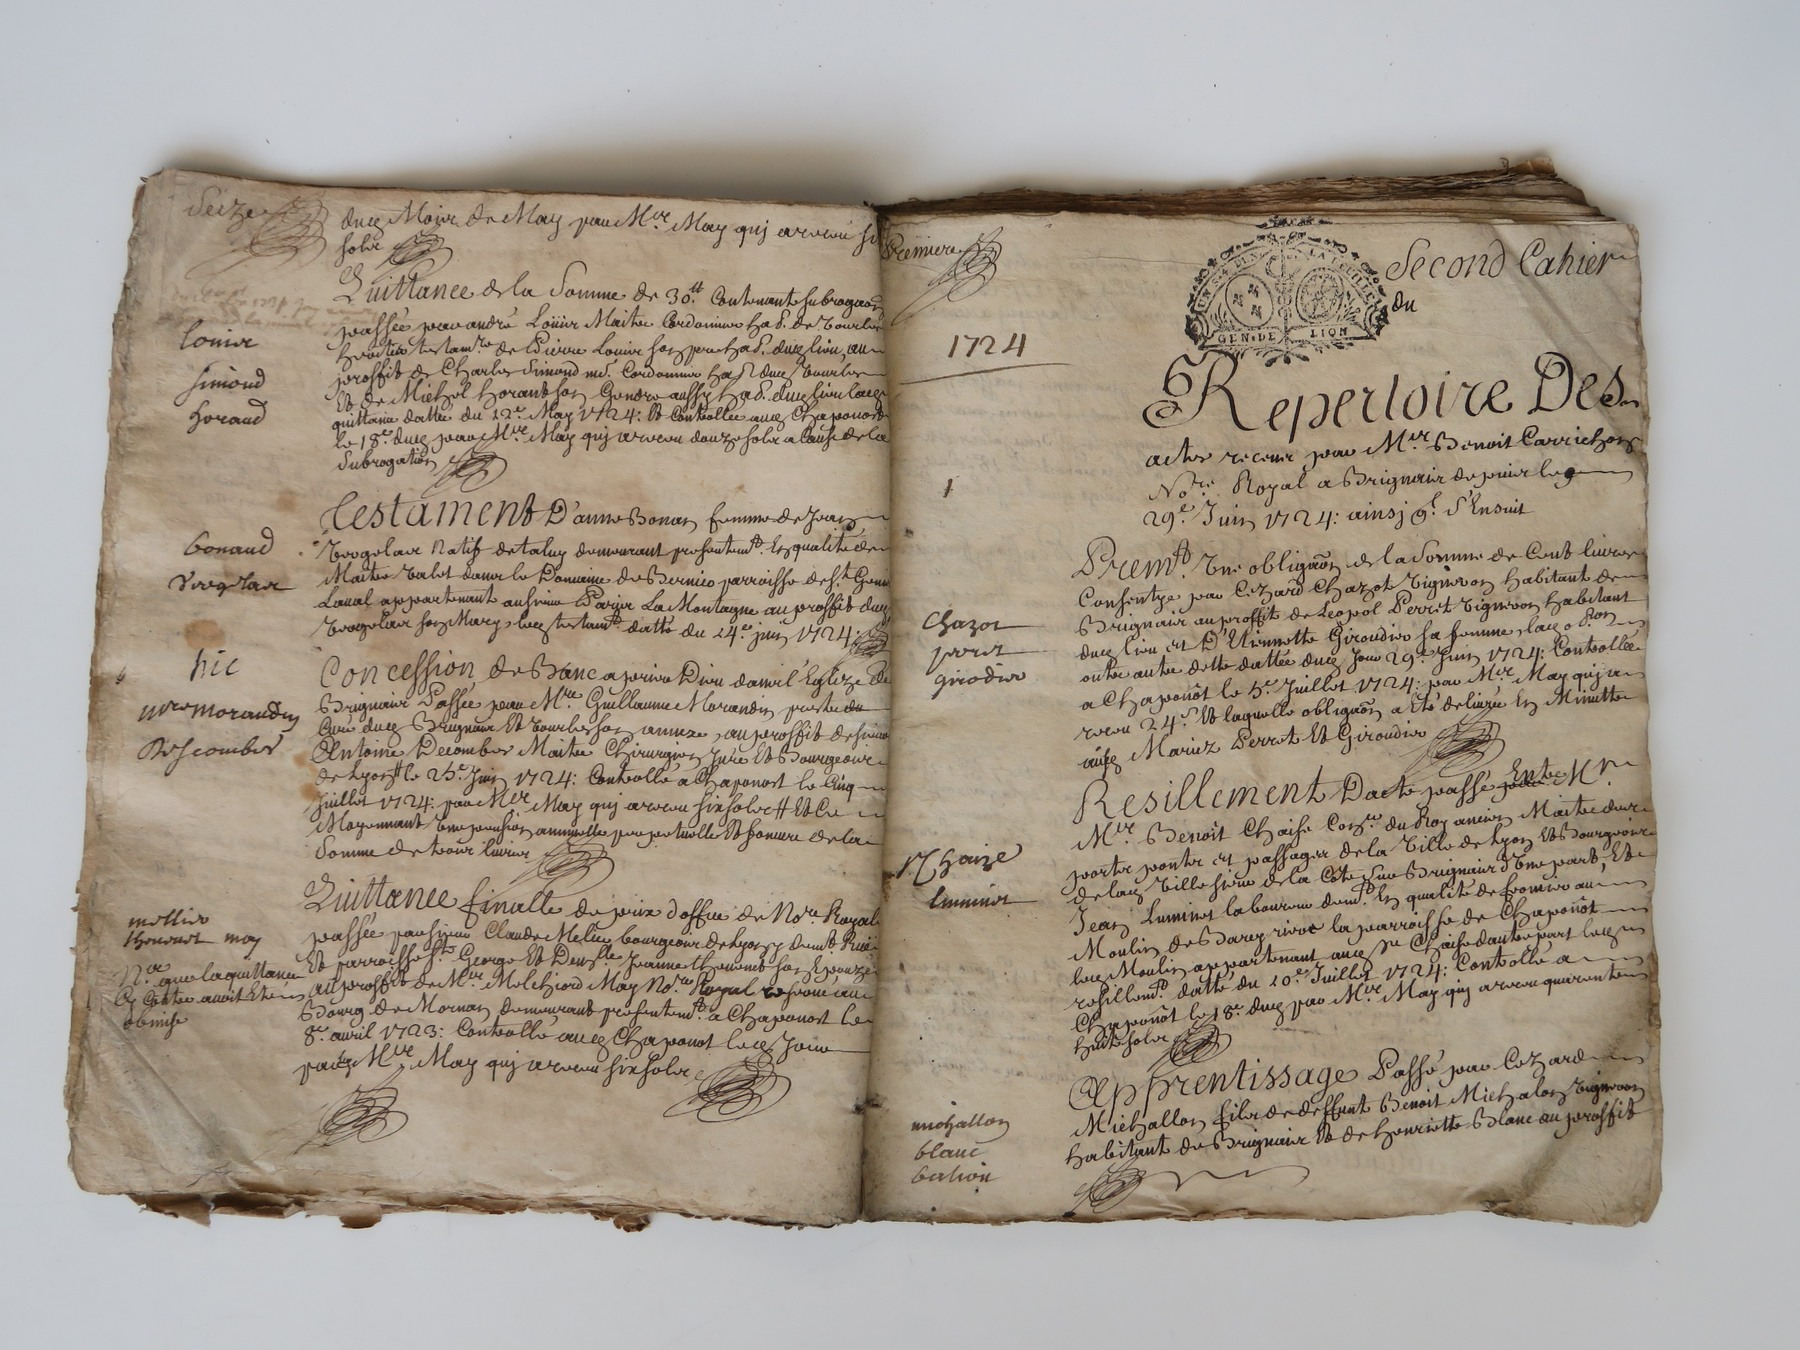 Seize
ducq Mois de May par Mre. May quj a receu
solz
Quittance de la Somme de 30tt Contenant subrogaon
passée par andré Loüir Maitre Cordonnier ha͠t. de Vourles
heritier testamre de Pierre Louir son pere ha͠t. ducq lieu, au
proffit de Charles Simond md. Cordonnier ha͠t ducq Vourles
Et de Michel Horand son Gendre aussy ha͠t. ducq lieu lacq
quittance dattée du 12e May 1724: Et Controllée aucq Chaponost
le 18e. ducq par Mre. May quj a receu douze solz a Cause de la
Subrogation
Louir
Simond
horaud
Testament D'anne Bonan femme de Jean
Vergelas Natif de taluy demeurant presentemt. En qualité de
Maitre Valet dans le Domaine de Bernico parroisse de St. Genis
Laual appartenant au sieur Parisr La Montagne au proffit ducq
Vergelas son Mary, lacq testamt. datté du 24e juin 1724:
bonaud
Vergelas
Concession de Banc a prier Dieu dans l'Eglize de
Brignais Passée par Mre. Guillaume Morandin prestre
Curé ducq Brignais Et Vourles son annexe, au proffit de sieur
Antoine Decombes Maitre Chirurgien Juré Et Bourgeois
de Lyon le 25e Juin 1724: Controllé a Chaponost le Cinq
Juillet 1724: par Mre May quj a receu six solz Et Ce
Moyennant Vne pension annuelle perpetuelle Et fonciere de la
Somme de trois liures
hic
mre morandin
Descombes
Quittance finalle de prix d'office de Nore. Royal
passée par sieur Claude Melier bourgeois de Lyon y demt. Ruë
Et parroisse St. George Et Demlle Jeanne thevenet son Epouze
au proffit de Mre. Melchiord May Nore. Royal reservé au
Bourg de Mornan demeurant presentemt. a Chaponost le
8e. avril 1723: Controllé aucq Chaponost lecq Jour
parcq Mre. May quj a receu six solz
mellier
thevenet may
Na. que la quittance
Cy Contre auoit Eté
obmise
Premiere
Second Cahier
du
GEN. DE LION
1724
Repertoire Des
actes receus par Mre. Benoit Carrichon
Nore. Royal a Brignais depuis le
29e. Juin 1724: ainsj q'. S'Ensuit
1
Premt. Vne obligaon de la Somme de Cent liures
Consentye par Cezard Chazot Vigneron habitant de
Brignais au proffit de Léopol Perret Vigneron habitant
ducq lieu et D'Etiennette Giroudier sa femme, lacq oon
outre autre dette dattée ducq Jour 29e Juin 1724: Controllée
a Chaponôt le 5e. Juillet 1724: par Mre May quj a
receu 24s. Et laquelle obligaon a Eté deliurée En Minutte
auscq Mariez Perret Et Giroudier
Chazot
peret
girodier
Resillement D'acte passé Entre Mr.
Mr. Benoit Chaise Conser. du Roy ancien Maitre des
portes ponts et passages de la Ville de Lyon Et Bourgeois
de lacq Ville sieur de la Côte sur Brignais d'Vne part, Et
Jean Luminet laboureur demt. En qualité de fermier au
Moulin de Barey riere la parroisse de Chaponôt
lecq Moulin appartenant aucq Sr. Chaise d'autre part lecq
resillemt. datté du 10e. Juillet 1724: Controllé a
Chaponôt le 18e. ducq par Mre. May quj a receu quarente
huit solz
Chaize
luminet
Apprentissage Passé par Cezard
Michallon fils de deffunt Benoit Michalon Vigneron
habitant de Brignais Et de henriette Blanc au proffit
michallon
blanc